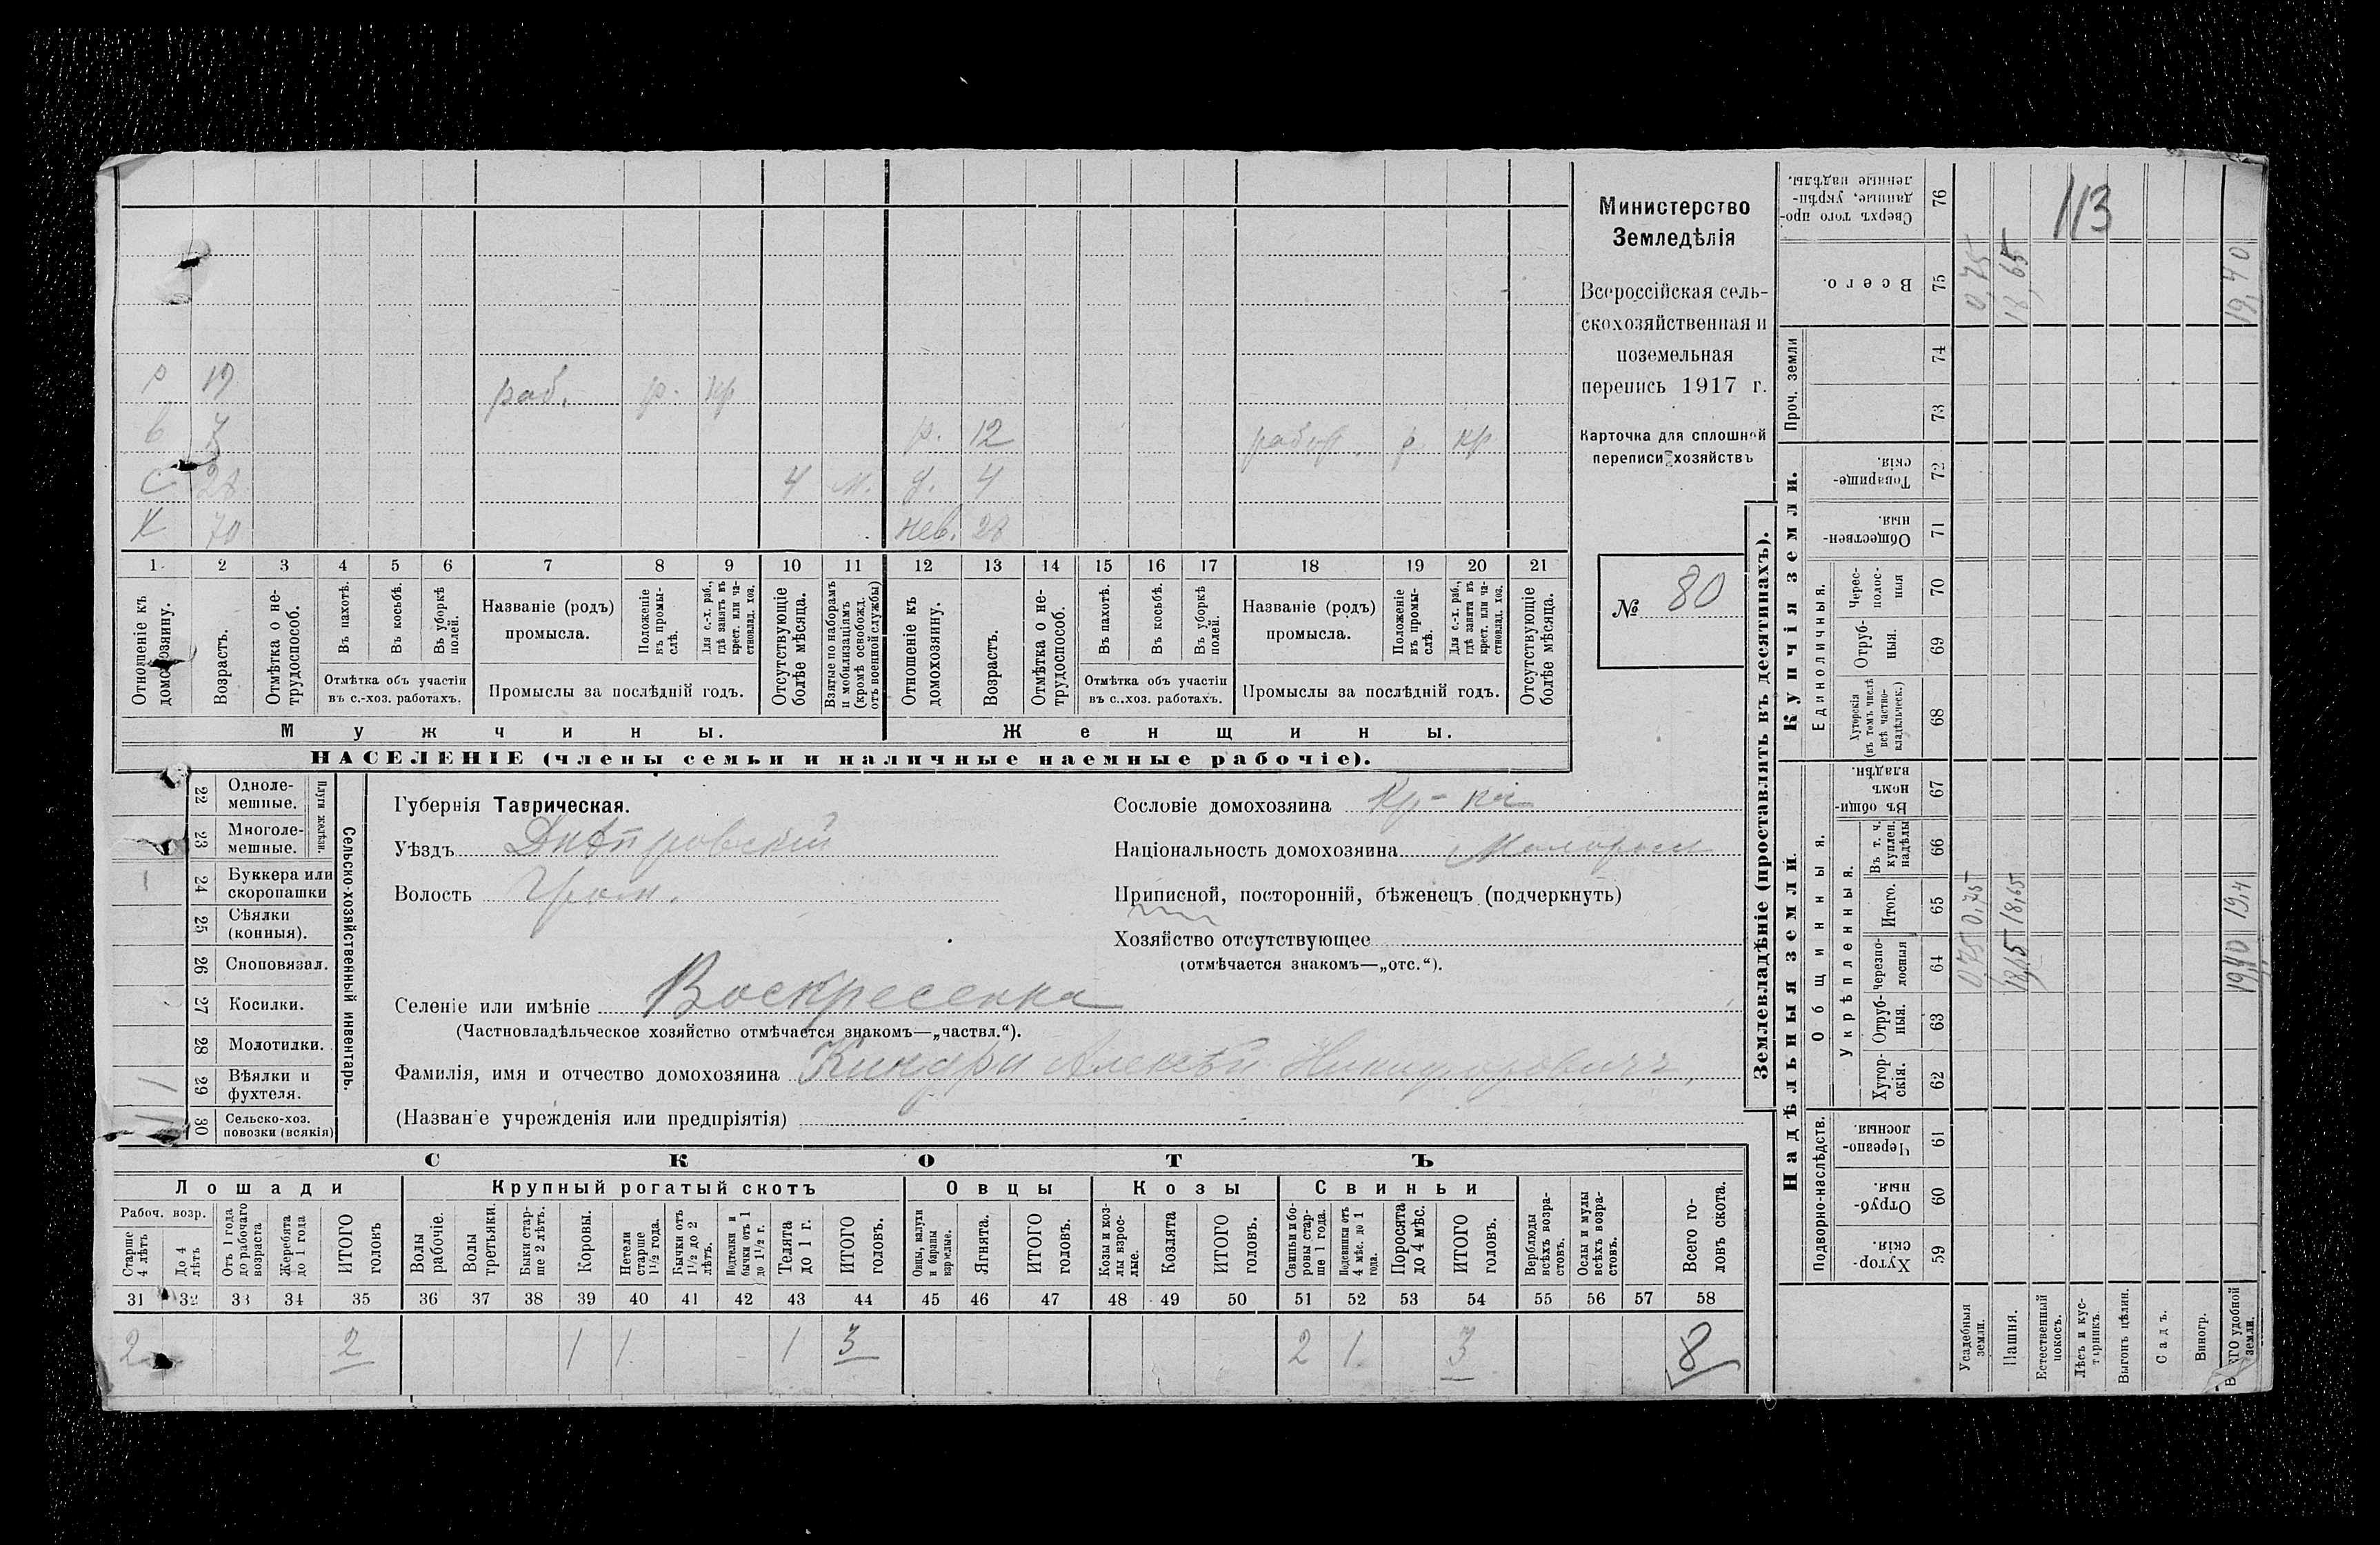 Министерство
Земледѣлія
Всероссійская сель-
скохозяйственная и
поземельная
перепись 1917 г.
Карточка для сплошной
переписи хозяйствъ
№ 80
р 19 раб. р. кр
в 7 р. 12 р кр
с 28 4 м. д. 4
К 70 нев. 28
1 2 3 4 5 6 7 8 9 10 11 12 13 14 15 16 17 18 19 20 21
Отношеніе къ домохозяину.
Возрастъ.
Отмѣтка о не-трудоспособ.
Въ пахотѣ.
Въ косьбѣ.
Въ уборкѣ полей.
Отмѣтка объ участіи
въ с.-хоз. работахъ.
Названіе (родъ)
промысла.
Положеніе въ промы-слѣ.
Для с.-х. раб., гдѣ занятъ въ крест. или ча-стновлад. хоз.
Промыслы за послѣдній годъ.
Отсутствующіе болѣе мѣсяца.
Взятые по наборамъ и мобилизаціямъ (кромѣ освобожд. отъ военной службы)
Отношеніе къ домохозяину.
Возрастъ.
Отмѣтка о не-трудоспособ.
Въ пахотѣ.
Въ косьбѣ.
Въ уборкѣ полей.
Отмѣтка объ участіи
въ с..хоз. работахъ.
Названіе (родъ)
промысла.
Положеніе въ промы-слѣ.
Для с.-х. раб., гдѣ занята въ крест. или ча-стновлад. хоз.
Промыслы за послѣдній годъ.
Отсутствующіе болѣе мѣсяца.
Мужчины.
Женщины.
НАСЕЛЕНІЕ (члены семьи и наличные наемные рабочіе).
Сельско-хозяйственный инвентарь.
Плуги желѣзн.
22 Одноле-мешные.
23 Многоле-мешные.
24 Буккера или скоропашки
25 Сѣялки (конныя).
26 Сноповязал.
27 Косилки.
28 Молотилки.
29 Вѣялки и фухтеля. 1
30 Сельско-хоз. повозки (всякія) 1
Губернія Таврическая.
Уѣздъ Днѣпровскій
Волость Гром.
Селеніе или имѣніе Воскресенка
(Частновладѣльческое хозяйство отмѣчается знакомъ—„частвл.“).
Фамилія, имя и отчество домохозяина Алексѣй Никифоровичъ
(Названіе учрежденія или предпріятія)
Сословіе домохозяина Кр-нъ
Національность домохозяина Малоросс
Приписной, посторонній, бѣженецъ (подчеркнуть)
Хозяйство отсутствующее
(отмѣчается знакомъ—„отс.“).
СКОТЪ
Лошади
Крупный рогатый скотъ
Овцы
Козы
Свиньи
Рабоч. возр.
Старше 4 лѣтъ
До 4 лѣтъ
Отъ 1 года до рабочаго возраста
Жеребята до 1 года
ИТОГО головъ
Волы рабочіе.
Волы третьяки.
Быки стар-ше 2 лѣтъ.
Коровы.
Нетели старше 1½ года.
Бычки отъ 1½ до 2 лѣтъ.
Подтелки и бычки отъ 1 до 1½ г.
Телята до 1 г.
ИТОГО головъ.
Овцы, валухи и бараны взрослые.
Ягнята.
ИТОГО головъ.
Козы и коз-лы взрос-лые.
Козлята
ИТОГО головъ.
Свиньи и бо-ровы стар-ше 1 года.
Подсвинки отъ 4 мѣс. до 1 года.
Поросята до 4 мѣс.
ИТОГО головъ.
Верблюды всѣхъ возра-стовъ.
Ослы и мулы всѣхъ возра-стовъ.
Всего го-ловъ скота.
31 32 33 34 35 36 37 38 39 40 41 42 43 44 45 46 47 48 49 50 51 52 53 54 55 56 57 58
2 2 1 1 1 3 2 1 3 8
Землевладѣніе (проставлять въ десятинахъ).
Купчія земли.
Надѣльныя земли.
Сверхъ того про-данные, укрѣп-ленные надѣлы. 76
Всего. 75
Проч. земли 74 73
Товарище-скія. 72
Обществен-ныя. 71
Единоличныя.
Черес-полос-ныя 70
Отруб-ныя. 69
Хуторскія (въ томъ числѣ всѣ частно-владѣльческ.) 68
Общинныя.
Въ общи-номъ владѣн. 67
Укрѣпленныя.
Въ т. ч. куплен. надѣлы 66
Итого. 65
Черезпо-лосныя 64
Отруб-ныя. 63
Хутор-скія. 62
Подворно-наслѣдств.
Черезпо-лосныя. 61
Отруб-ныя. 60
Хутор-скія. 59
113
Усадебныя земли. 0,75 0,75 0,75
Пашня. 18,65 18,65 18,65
Естественный покосъ.
Лѣсъ и кус-тарникъ.
Выгонъ цѣлин.
Садъ.
Виногр.
ВСЕГО удобной земли. 19,40 19,4 19,40